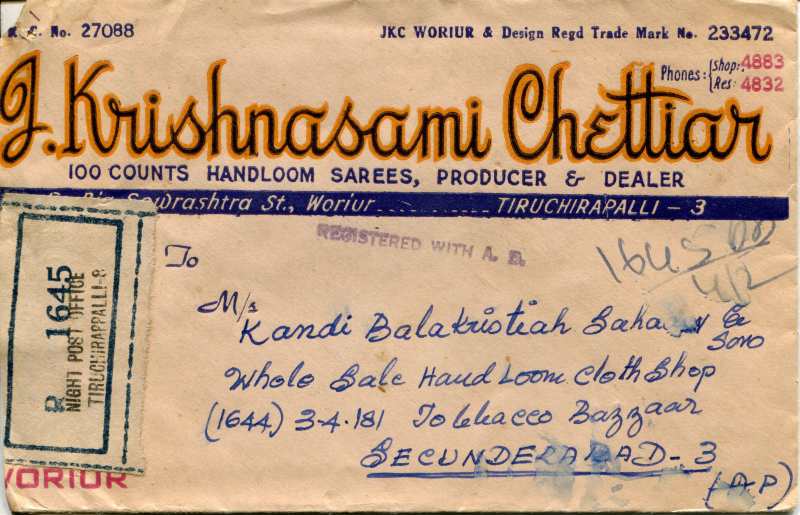 C. No. 27088
JKC WORIUR & Design Regd Trade Mark No. 233472
Phones: Shop: 4883
Res: 4832
J. Krishnasami Chettiar
100 COUNTS HANDLOOM SAREES, PRODUCER & DEALER
Sowrashtra St., Woriur ............ TIRUCHIRAPALLI - 3
REGISTERED WITH A. D.
1645
R 1645
NIGHT POST OFFICE
TIRUCHIRAPPALLI-8
To
M/s
Kandi Balakristiah &
Sons
Whole Sale Hand Loom Cloth Shop
(1644) 3-4-181 Tobbacco Bazzaar
SECUNDERABAD - 3
(A.P)
WORIUR